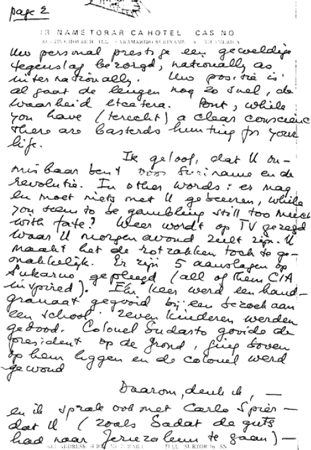 page 2
NAME TORARICA HOTEL CASINO
Uw personal prestige een geweldige
tegenslag bezorgd, nationally as
internationally. Uw positie is
al gaat de leugen nog zo snel, de
waarheid etcetera. Pont, while
you have (terecht) a clear conscience
there are basterds hunting for your
life.
Ik geloof, dat U on-
misbaar bent voor Suriname en de
revolutie. In other words: er mag
en moet niets met U gebeuren, while
you seem to be gambling still too much
with fate? Weer wordt op TV gezegd
waar U morgen avond zult zijn. U
maakt het de rotzakken toch te ge-
makkelijk. Er zijn 5 aanslagen op
Sukarno gepleegd (all of them CIA
inspired). Elke keer werd een hand-
granaat gegooid bij een bezoek aan
een school. Zeven kinderen werden
gedood. Colonel Sudarto gooide de
president op de grond, ging boven
op hem liggen en de colonel werd
gewond
Daarom, denk ik, —
en ik sprak ook met Carlo Spier —
dat U (zoals Sadat de guts
had naar Jeruzalem te gaan) —